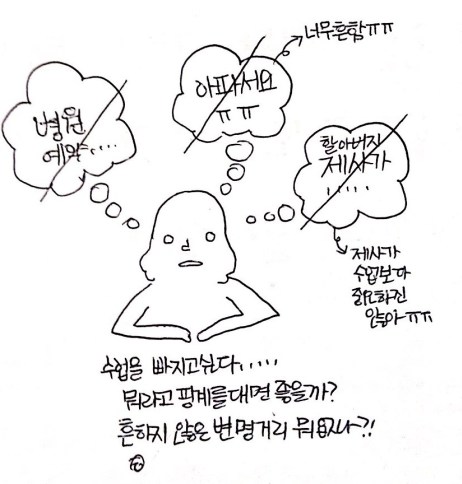 너무흔함ㅠㅠ
아파서요
ㅠㅠ
병원
예약....
할아버지
제사가
.....
제사가
수업보다
중요하진
않아ㅠㅠ
수업을 빠지고싶다.....
뭐라고 핑계를대면 좋을까?
흔하지 않은 변명거리 뭐 없나~?!